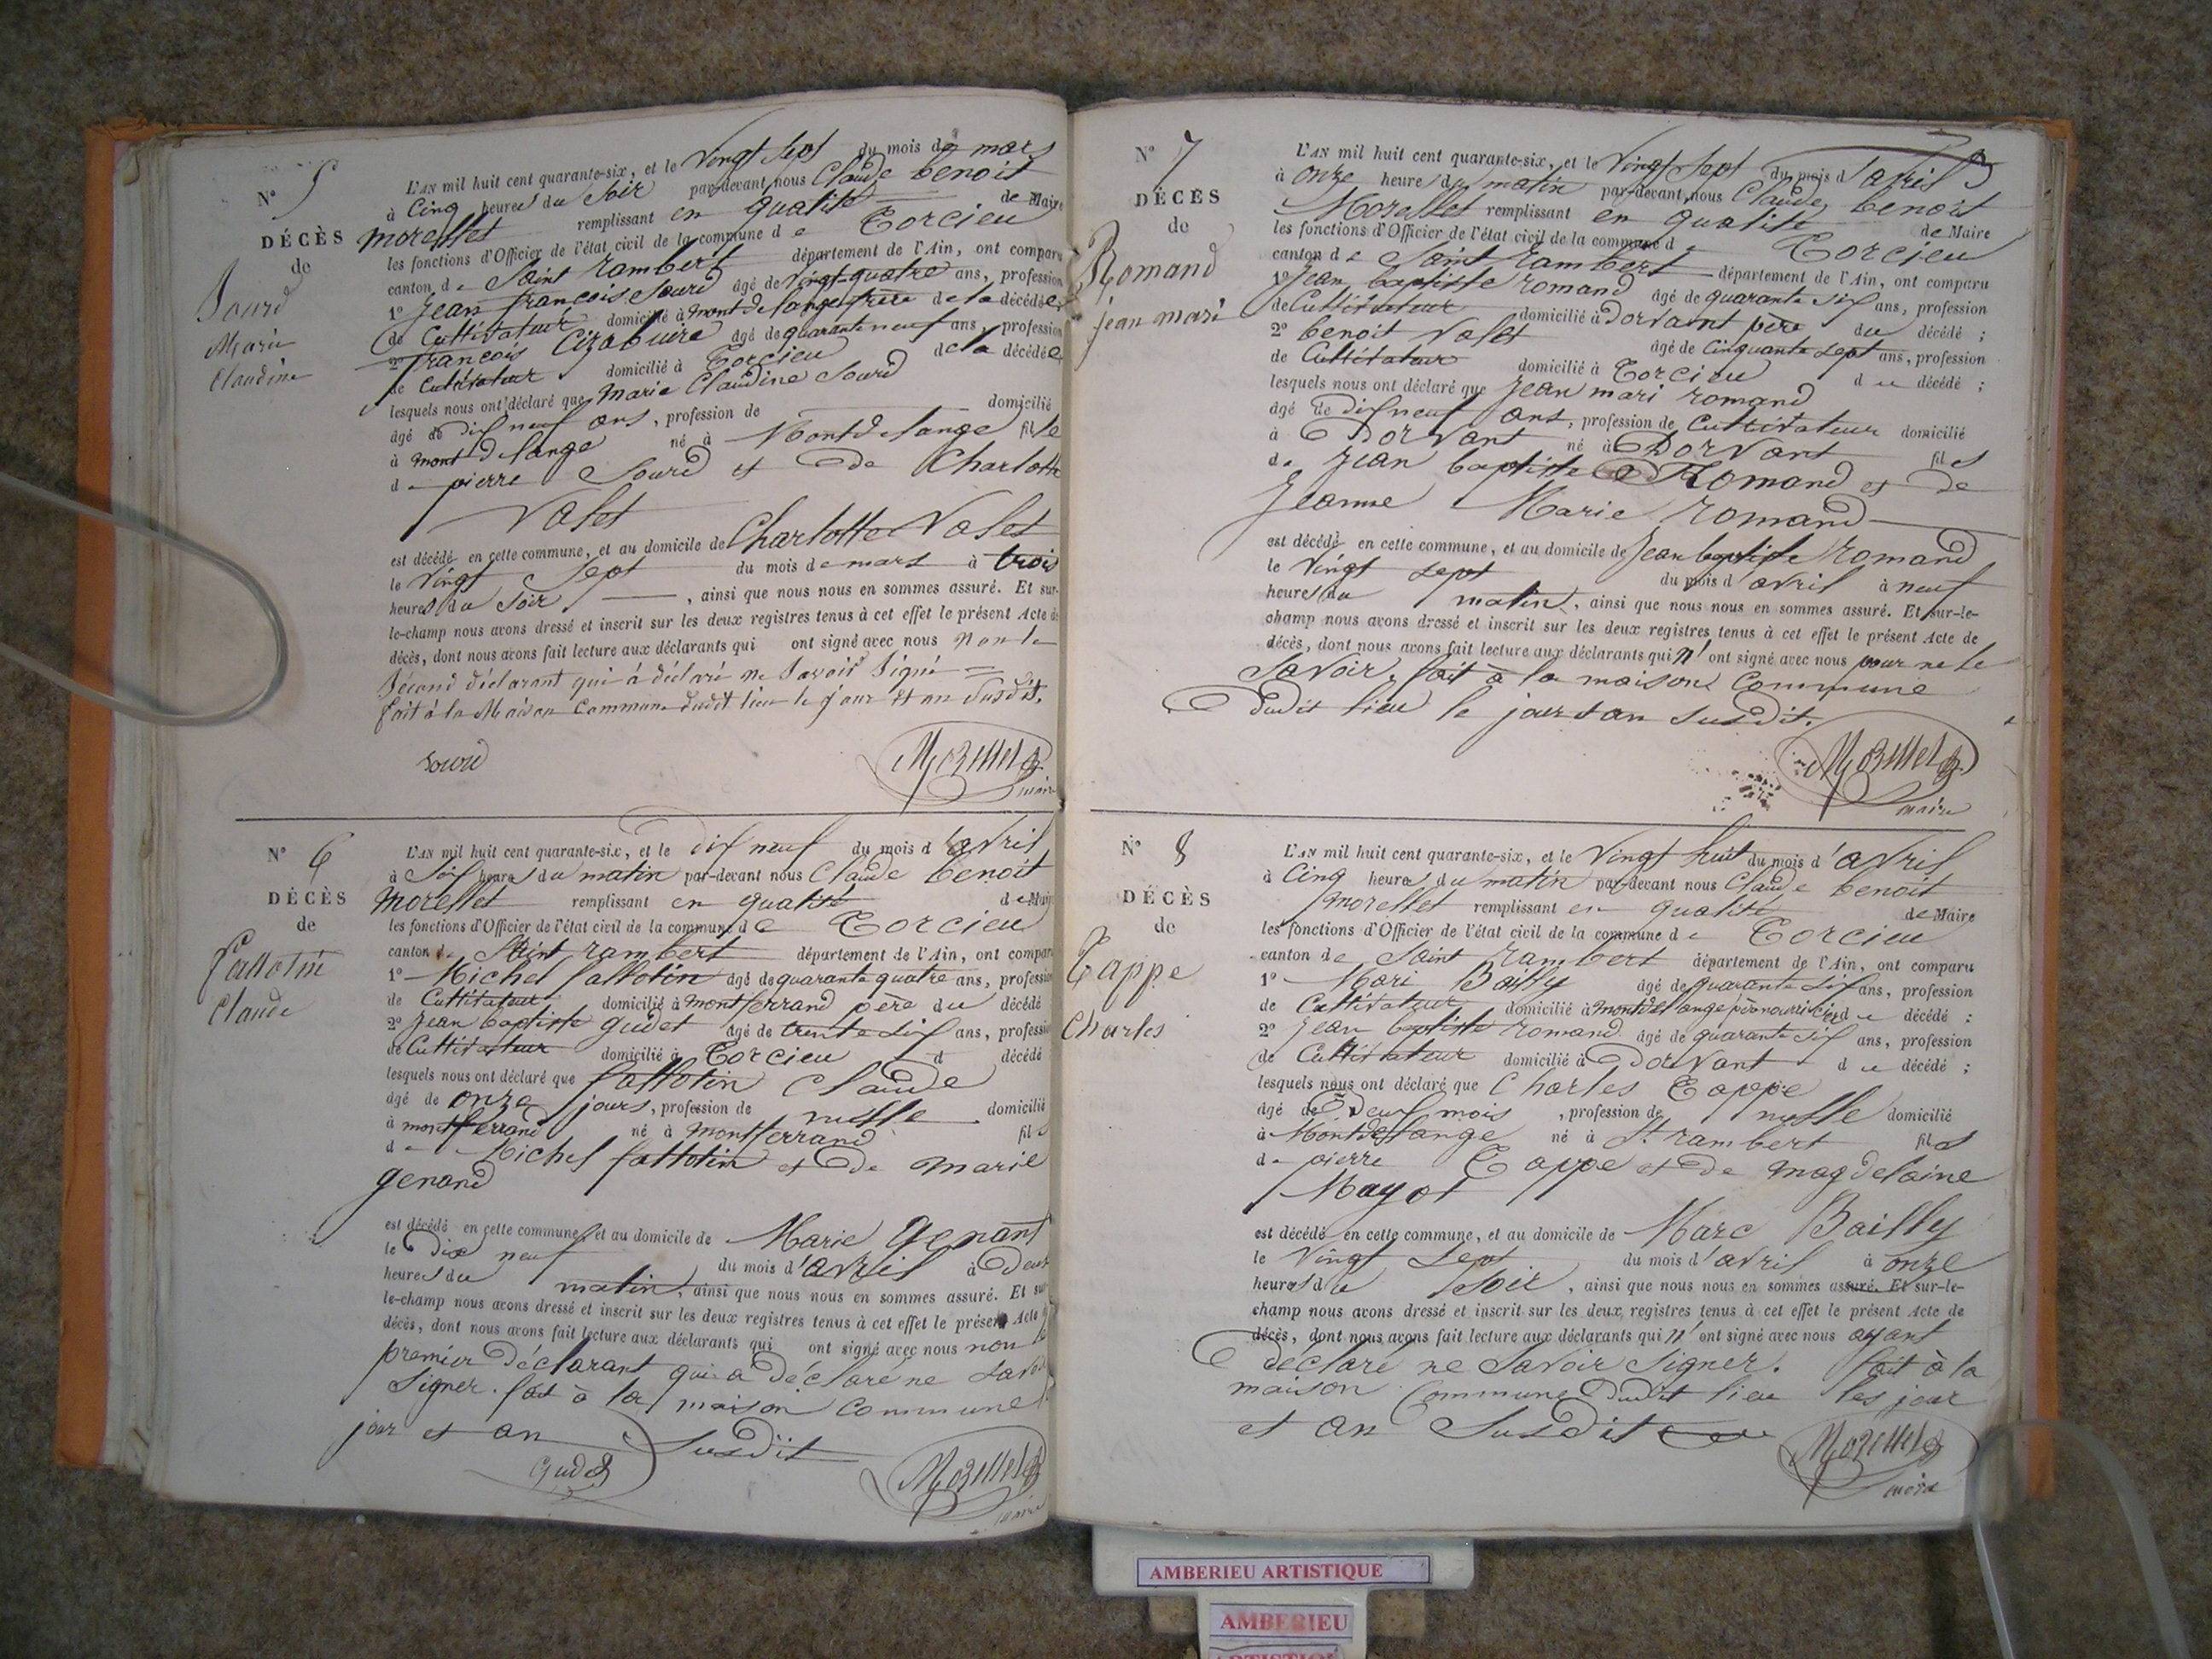 N° 5
DÉCÈS
de
Sourd
Marie
Claudine
L'AN mil huit cent quarante-six, et le Vingt Sept du mois de mars
à Cinq heures du Soir par-devant nous Claude benoit
morellet remplissant en qualité de Maire
les fonctions d'Officier de l'état civil de la commune de Torcieu
canton de Saint rambert département de l'Ain, ont comparu
1° Jean françois Sourd âgé de vingt-quatre ans, profession
de Cultivateur domicilié à mont de lange frère de la décédée
2° françois âgé de quarante neuf ans, profession
de Cultivateur domicilié à Torcieu de la décédée
lesquels nous ont déclaré que Marie Claudine Sourd
âgé de dix neuf ans, profession de domicilié
à mont de lange né à Montdelange fille
de pierre Sourd et de Charlotte
Valet
est décédé en cette commune, et au domicile de Charlotte Valet
le Vingt Sept du mois de mars à trois
heures du Soir, ainsi que nous nous en sommes assuré. Et sur-
le-champ nous avons dressé et inscrit sur les deux registres tenus à cet effet le présent Acte de
décès, dont nous avons fait lecture aux déclarants qui ont signé avec nous non le
Second déclarant qui à déclaré ne Savoir Signé
fait à la Maison Commune dudit lieu le jour et an Susdit.
Sourd
Morellet
maire
N° 6
DÉCÈS
de
fallotin
Claude
L'AN mil huit cent quarante-six, et le dix neuf du mois d'avril
à Six heures du matin par-devant nous Claude benoit
morellet remplissant en qualité de Maire
les fonctions d'Officier de l'état civil de la commune de Torcieu
canton de Saint rambert département de l'Ain, ont comparu
1° Michel fallotin âgé de quarante quatre ans, profession
de Cultivateur domicilié à montferrand père du décédé
2° Jean baptiste gudet âgé de trente Six ans, profession
de Cultivateur domicilié à Torcieu d décédé
lesquels nous ont déclaré que fallotin Claude
âgé de onze jours, profession de nulle domicilié
à montferrand né à montferrand fils
de Michel fallotin et de marie
genand
est décédé en cette commune, et au domicile de Marie genant
le Dix neuf du mois d'avril à Deux
heures du matin, ainsi que nous nous en sommes assuré. Et sur
le-champ nous avons dressé et inscrit sur les deux registres tenus à cet effet le présent Acte
décès, dont nous avons fait lecture aux déclarants qui ont signé avec nous non le
premier déclarant qui a déclaré ne Savoir
Signer. fait à la maison Commune
jour et an Susdit
Gudet
Morellet
maire
N° 7
DÉCÈS
de
Romand
jean mari
L'AN mil huit cent quarante-six, et le Vingt Sept du mois d'avril
à onze heure du matin par-devant nous Claude benoit
Morellet remplissant en qualité de Maire
les fonctions d'Officier de l'état civil de la commune de Torcieu
canton de Saint rambert département de l'Ain, ont comparu
1° Jean baptiste romand âgé de quarante Six ans, profession
de Cultivateur domicilié à Dorvant père du décédé ;
2° benoit Valet âgé de Cinquante Sept ans, profession
de Cultivateur domicilié à Torcieu du décédé ;
lesquels nous ont déclaré que Jean mari romand
âgé de dix neuf ans, profession de Cultivateur domicilié
à Dorvant né à Dorvant fils
de Jean baptiste Romand et de
Jeanne Marie romand
est décédé en cette commune, et au domicile de Jean baptiste Romand
le Vingt Sept du mois d'avril à neuf
heures du matin, ainsi que nous nous en sommes assuré. Et sur-le-
champ nous avons dressé et inscrit sur les deux registres tenus à cet effet le présent Acte de
décès, dont nous avons fait lecture aux déclarants qui n'ont signé avec nous pour ne le
Savoir, fait à la maison Commune
Dudit lieu le jour et an Susdit.
Morellet
maire
N° 8
DÉCÈS
de
Tappe
Charles
L'AN mil huit cent quarante-six, et le Vingt huit du mois d'avril
à Cinq heures du matin par-devant nous Claude benoit
morellet remplissant en qualité de Maire
les fonctions d'Officier de l'état civil de la commune de Torcieu
canton de Saint rambert département de l'Ain, ont comparu
1° Mari Bailly âgé de quarante Six ans, profession
de Cultivateur domicilié à montdelange père nourricier du décédé ;
2° Jean baptiste romand âgé de quarante Six ans, profession
de Cultivateur domicilié à Dorvant du décédé ;
lesquels nous ont déclaré que Charles Tappe
âgé de Deux mois, profession de nulle domicilié
à Montdelange né à St. rambert fils
de pierre Tappe et de magdelaine
Mayot
est décédé en cette commune, et au domicile de Marc Bailly
le Vingt Sept du mois d'avril à onze
heures du Soir, ainsi que nous nous en sommes assuré. Et sur-le-
champ nous avons dressé et inscrit sur les deux registres tenus à cet effet le présent Acte de
décès, dont nous avons fait lecture aux déclarants qui n'ont signé avec nous ayant
déclaré ne Savoir Signer. fait à la
maison Commune dudit lieu les jour
et an Susdit
Morellet
maire
AMBERIEU ARTISTIQUE
AMBERIEU
ARTISTIQUE